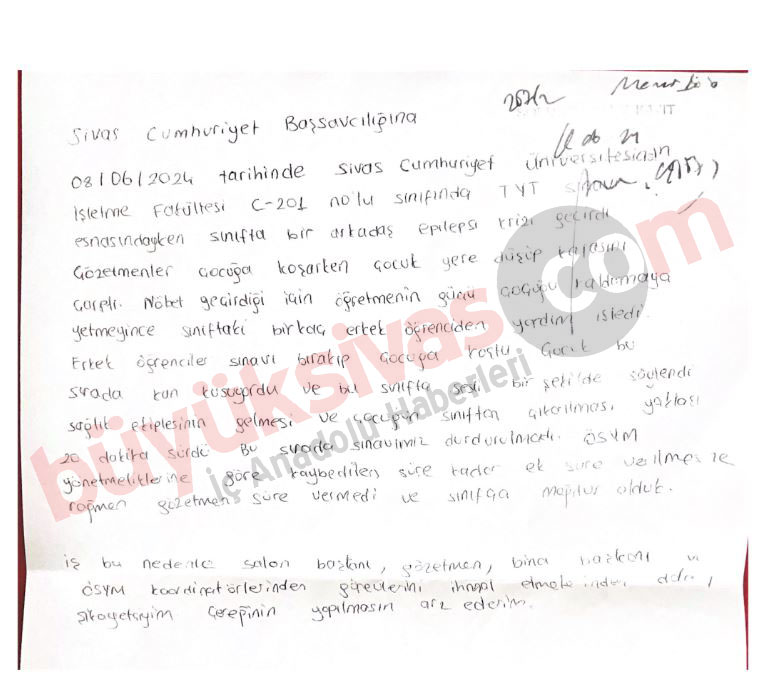 Sivas Cumhuriyet Başsavcılığına
08/06/2024 tarihinde Sivas Cumhuriyet Üniversitesinin
İşletme Fakültesi C-201 no'lu sınıfında TYT
esnasındayken sınıfta bir arkadaş epilepsi krizi geçirdi
Gözetmenler çocuğa koşarken çocuk yere düşüp kafasını
çarptı. Nöbet geçirdiği için öğretmenin gücü çocuğu kaldırmaya
yetmeyince sınıftaki birkaç erkek öğrenciden yardım istedi.
Erkek öğrenciler sınavı bırakıp çocuğa koştu Çocuk bu
sırada kan kusuyordu ve bu sınıfta sesli bir şekilde söylendi
sağlık ekiplerinin gelmesi ve çocuğun sınıftan çıkarılması yaklaşı
20 dakika sürdü Bu sırada sınavımız durdurulmadı. ÖSYM
yönetmeliklerine göre kaybedilen süre kadar ek süre verilmesine
rağmen gözetmen süre vermedi ve sınıfça mağdur olduk.
iş bu nedenle salon başkanı, gözetmen, bina başkanı ve
ÖSYM koordinatörlerinden görevlerini ihmal etmelerinden dolayı
şikayetçiyim Gereğinin yapılmasın arz ederim.
büyüksivas.com
İç Anadolu Haberleri